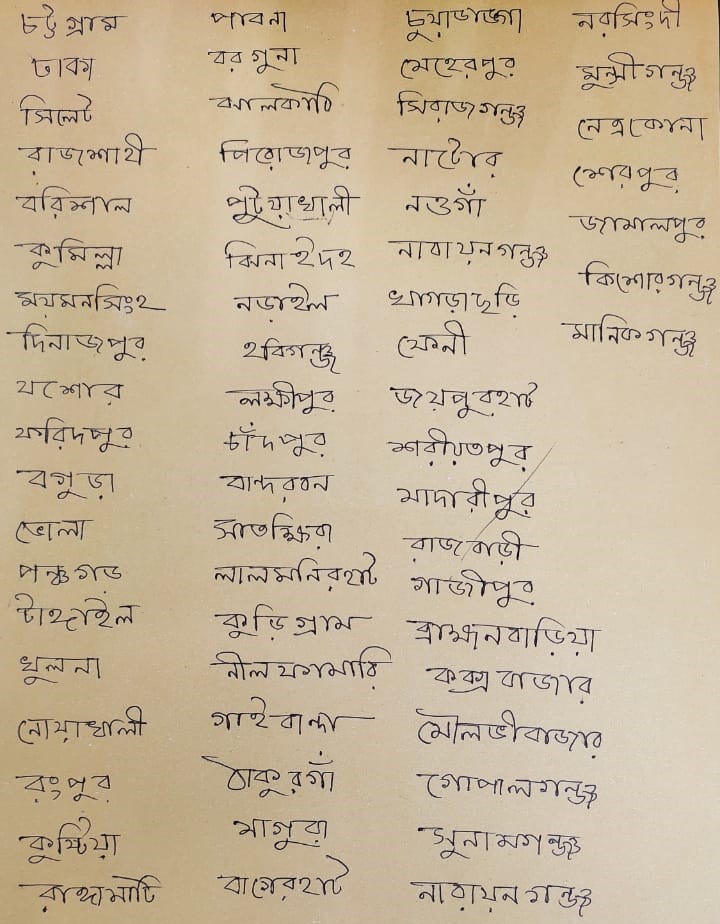 চট্টগ্রাম
ঢাকা
সিলেট
রাজশাহী
বরিশাল
কুমিল্লা
ময়মনসিংহ
দিনাজপুর
যশোর
ফরিদপুর
বগুড়া
ভোলা
পঞ্চগড়
টাঙ্গাইল
খুলনা
নোয়াখালী
রংপুর
কুষ্টিয়া
রাঙ্গামাটি
পাবনা
বরগুনা
ঝালকাঠি
পিরোজপুর
পুটুয়াখালী
ঝিনাইদহ
নড়াইল
হবিগঞ্জ
লক্ষীপুর
চাঁদপুর
বান্দরবন
সাতক্ষিরা
লালমনিরহাট
কুড়িগ্রাম
নীলফামারি
গাইবান্দা
ঠাকুরগাঁ
মাগুরা
বাগেরহাট
চুয়াডাঙ্গা
মেহেরপুর
সিরাজগঞ্জ
নাটোর
নওগাঁ
নারায়নগঞ্জ
খাগড়াছড়ি
ফেনী
জয়পুরহাট
শরীয়তপুর
মাদারীপুর
রাজবাড়ী
গাজীপুর
ব্রাহ্মনবাড়িয়া
কক্স বাজার
মৌলভীবাজার
গোপালগঞ্জ
সুনামগঞ্জ
নারায়নগঞ্জ
নরসিংদী
মুন্সীগঞ্জ
নেত্রকোনা
শেরপুর
জামালপুর
কিশোরগঞ্জ
মানিকগঞ্জ